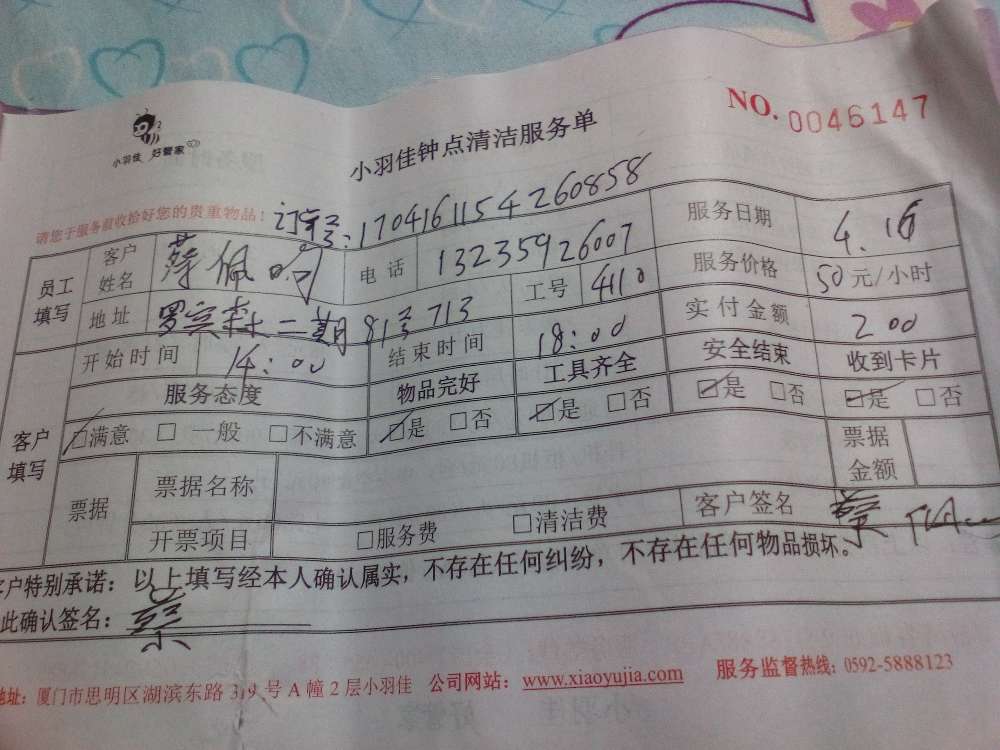 小羽佳 好管家
小羽佳钟点清洁服务单
NO. 0046147
请您于服务前收拾好您的贵重物品！ 订单号:170416115426 0858
员工填写 客户姓名 电话 13235926007 服务日期 4.16
地址 罗宾森二期81号713 工号 4110 服务价格 50元/小时
客户填写 开始时间 14:00 结束时间 18:00 实付金额 200
服务态度 物品完好 工具齐全 安全结束 收到卡片
☑满意 □一般 □不满意 ☑是 □否 ☑是 □否 ☑是 □否 ☑是 □否
票据 票据名称 票据金额
开票项目 □服务费 □清洁费 客户签名 蔡
客户特别承诺：以上填写经本人确认属实，不存在任何纠纷，不存在任何物品损坏。
此确认签名： 蔡
地址：厦门市思明区湖滨东路319号A幢2层小羽佳 公司网站：www.xiaoyujia.com 服务监督热线：0592-5888123